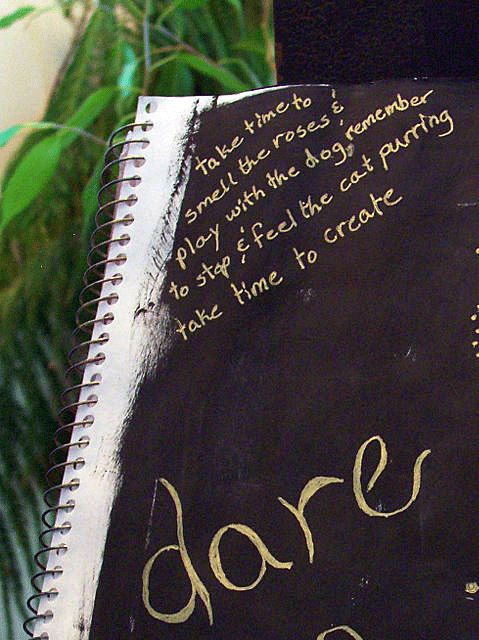 take time to
smell the roses &
play with the dog remember
to stop & feel the cat purring
take time to create
dare